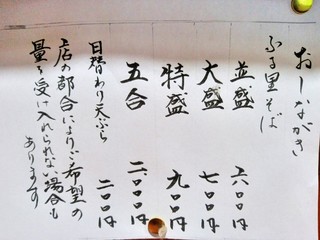 おしながき
ふる里そば
並盛 六〇〇円
大盛 七〇〇円
特盛 九〇〇円
五合 二〇〇〇円
日替わり天ぷら 二〇〇円
店の都合によりご希望の
量を受け入れられない場合も
あります